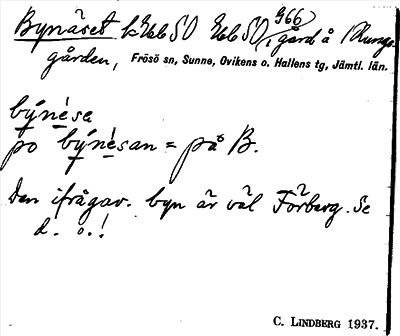 Bynäset k Eko SO Eko SO, 366 gård å Kungs-
gården, Frösö sn, Sunne, Ovikens o. Hallens tg, Jämtl. län.
býnése
po býnésan = på B.
Den ifrågav. byn är väl Förberg. Se
d. o.!
C. LINDBERG 1937.